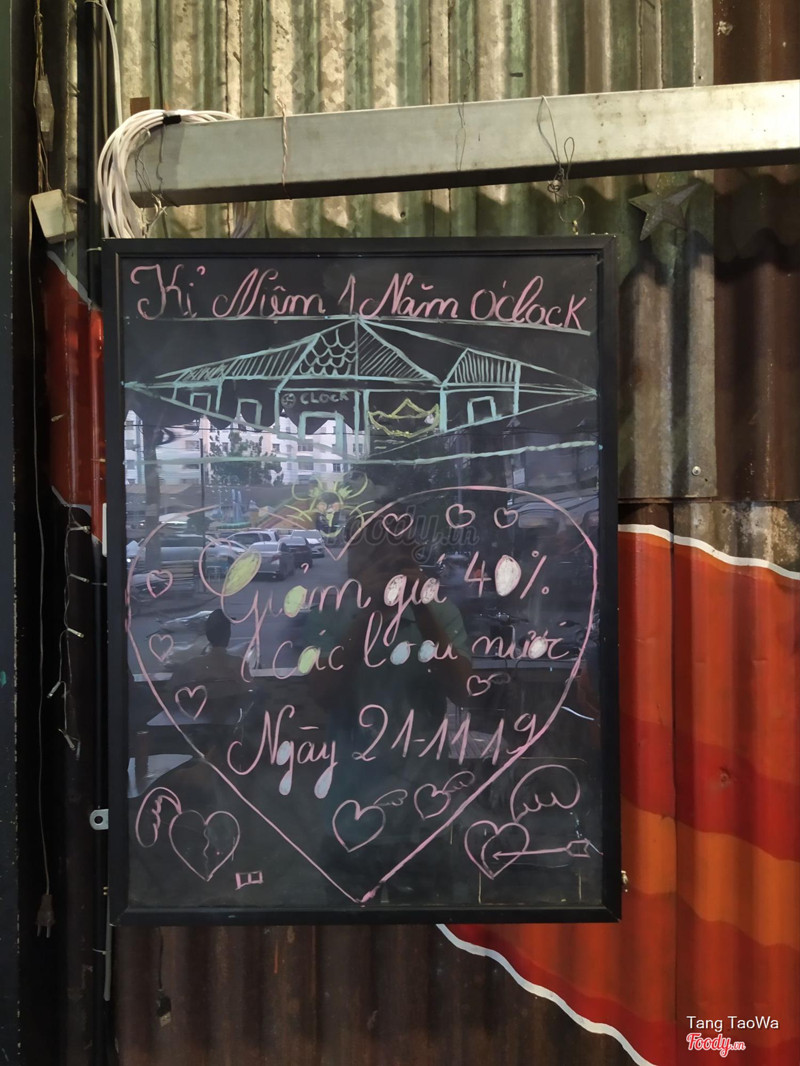 Kỉ Niệm 1 Năm O'clock
CLOCK
Foody.vn
Giảm giá 40%
các loại nước
Ngày 21-11-19
Tang TaoWa
Foody.vn